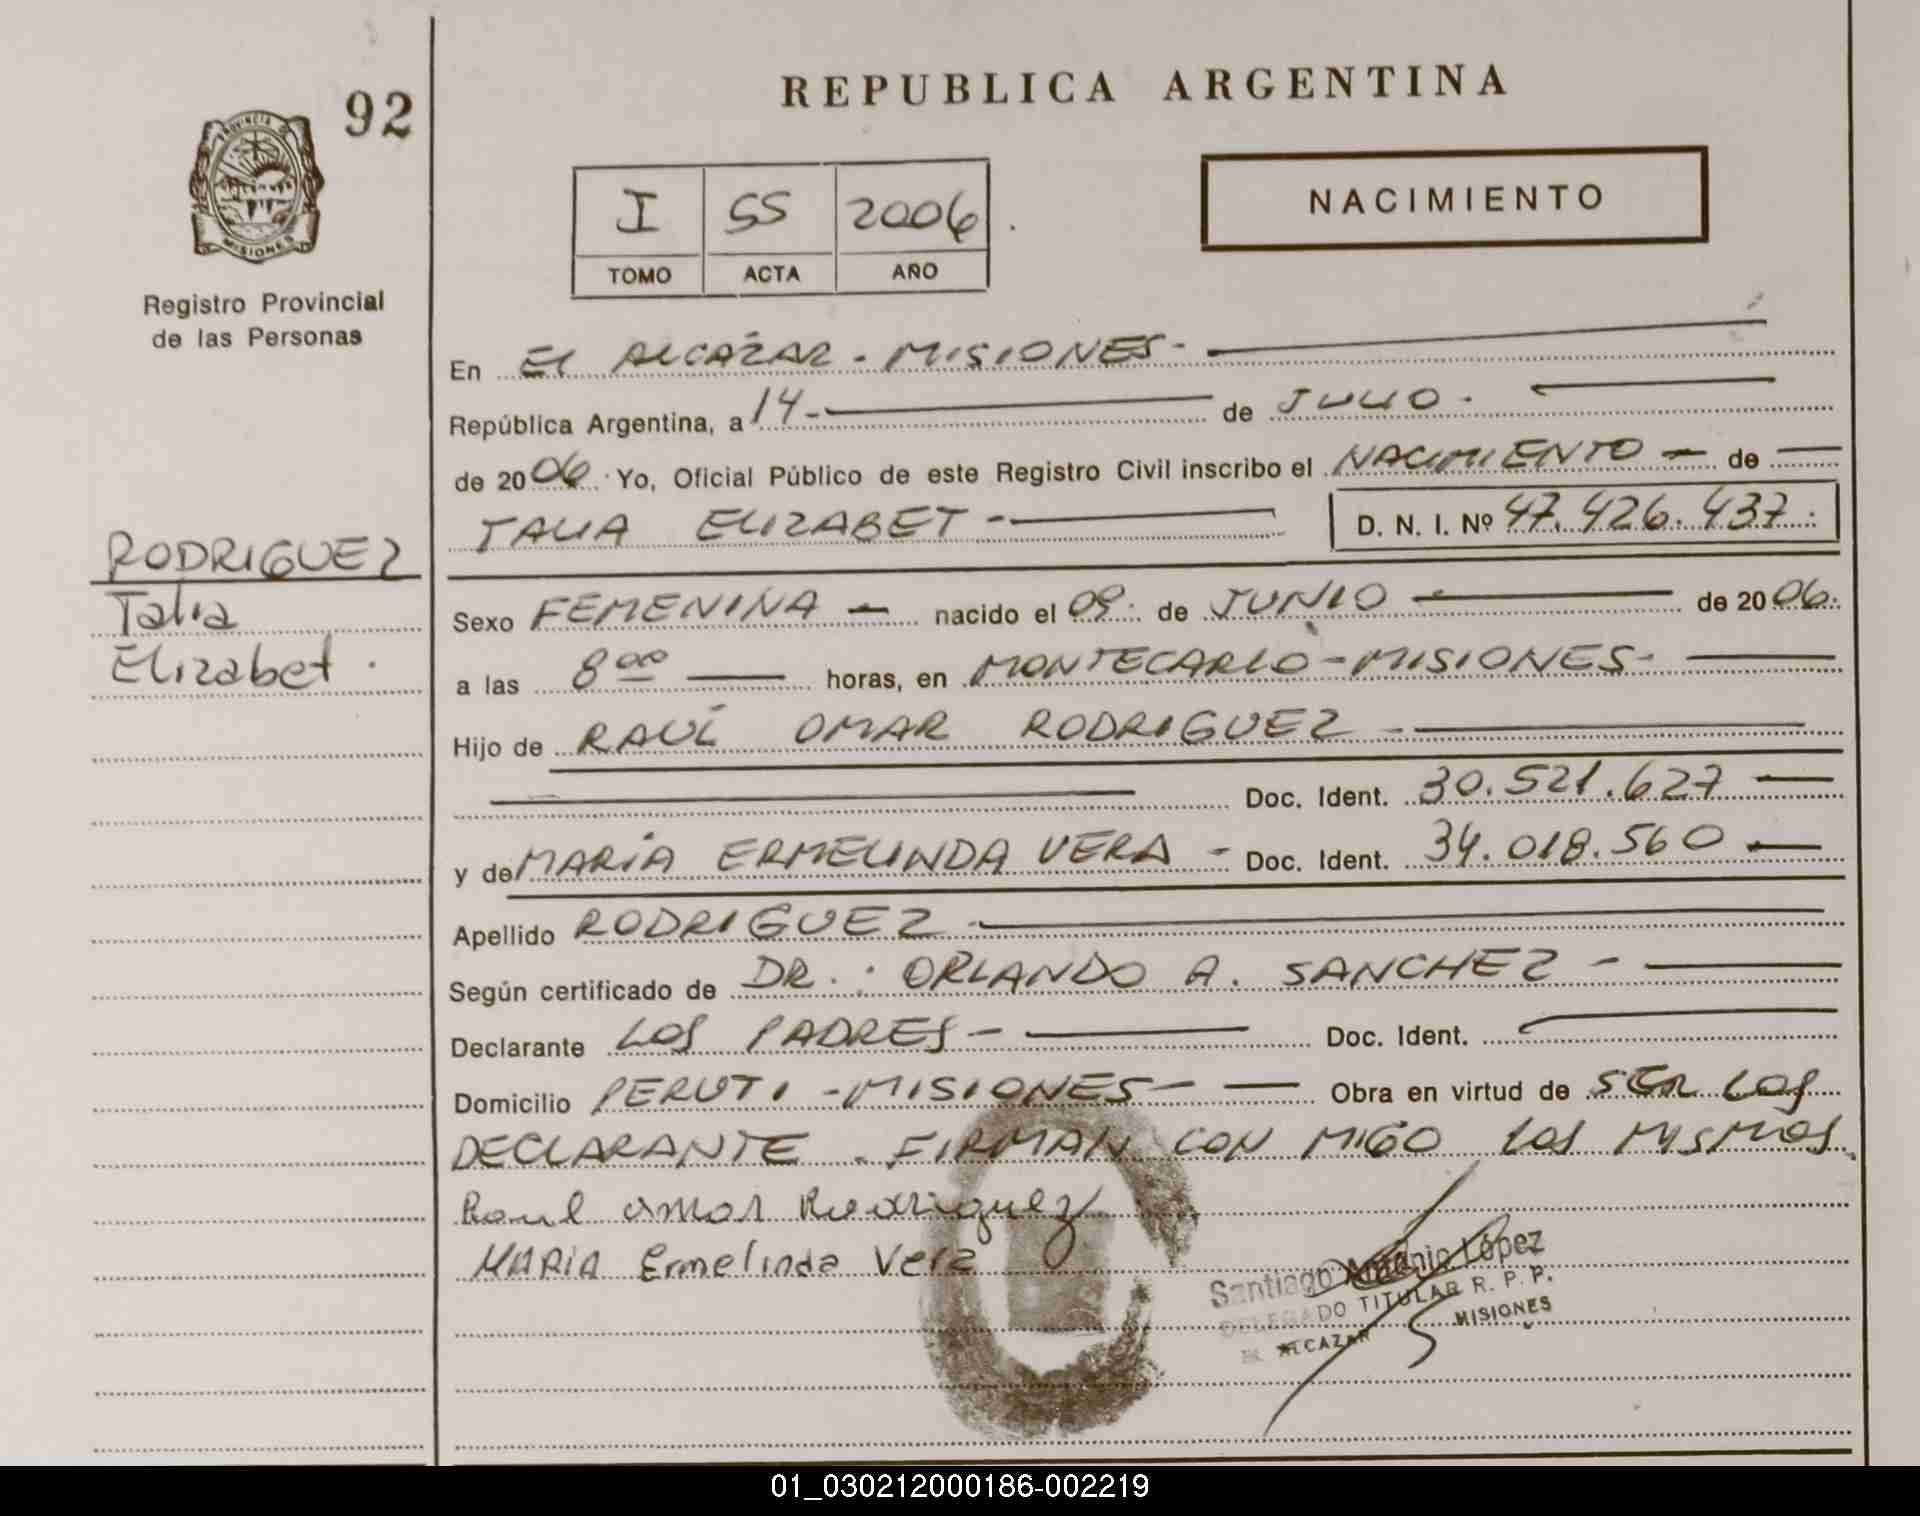 92
REPUBLICA ARGENTINA
PROVINCIA DE
MISIONES
Registro Provincial
de las Personas
I 55 2006.
TOMO ACTA AÑO
NACIMIENTO
En El ALCAZAR - MISIONES -
República Argentina, a 14 - de JULIO.
de 2006 Yo, Oficial Público de este Registro Civil inscribo el NACIMIENTO - de
TALIA ELIZABET - D. N. I. Nº 47.426.437.
RODRIGUEZ
Talia
Elizabet.
Sexo FEMENINA - nacido el 09. de JUNIO de 2006.
a las 8 00 horas, en MONTECARLO - MISIONES -
Hijo de RAUL OMAR RODRIGUEZ -
Doc. Ident. 30.521.627
y de MARÍA ERMELINDA VERA - Doc. Ident. 34.018.560
Apellido RODRIGUEZ -
Según certificado de DR.: ORLANDO A. SANCHEZ -
Declarante LOS PADRES - Doc. Ident.
Domicilio PERUTI - MISIONES - Obra en virtud de SER LOS
DECLARANTE. FIRMAN CON MIGO LOS MISMOS.
Raul omar Rodriguez
MARIA Ermelinda Vera
Santiago Antonio López
DELEGADO TITULAR R. P. P.
EL ALCAZAR MISIONES
01_030212000186-002219